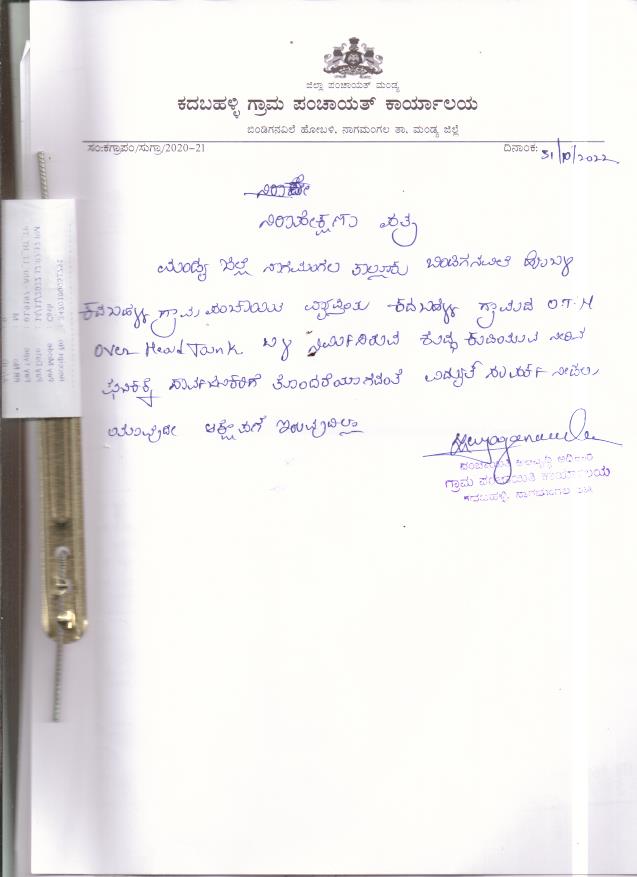 ಜಿಲ್ಲಾ ಪಂಚಾಯತ್ ಮಂಡ್ಯ
ಕದಬಹಳ್ಳಿ ಗ್ರಾಮ ಪಂಚಾಯತ್ ಕಾರ್ಯಾಲಯ
ಬಿಂಡಿಗನವಿಲೆ ಹೋಬಳಿ, ನಾಗಮಂಗಲ ತಾ. ಮಂಡ್ಯ ಜಿಲ್ಲೆ
ಸಂ:ಕಗ್ರಾಪಂ/ಸುಗ್ರಾ/2020-21 ದಿನಾಂಕ: 31/10/2022
ನಿರಾಪೇಕ್ಷಣಾ ಪತ್ರ
ಮಂಡ್ಯ ಜಿಲ್ಲೆ ನಾಗಮಂಗಲ ತಾಲ್ಲೂಕು ಬಿಂಡಿಗನವಿಲೆ ಹೋಬಳಿ
ಕದಬಹಳ್ಳಿ ಗ್ರಾಮ ಪಂಚಾಯಿತಿ ವ್ಯಾಪ್ತಿಯ ಕದಬಹಳ್ಳಿ ಗ್ರಾಮದ O.T.H
Over Head Tank ಬಳಿ ನಿರ್ಮಿಸಿರುವ ಶುದ್ಧ ಕುಡಿಯುವ ನೀರಿನ
ಘಟಕಕ್ಕೆ ಸಾರ್ವಜನಿಕರಿಗೆ ತೊಂದರೆಯಾಗದಂತೆ ವಿದ್ಯುತ್ ಸಂಪರ್ಕ ನೀಡಲು
ಯಾವುದೇ ಆಕ್ಷೇಪಣೆ ಇರುವುದಿಲ್ಲಾ
ಪಂಚಾಯಿತಿ ಅಭಿವೃದ್ಧಿ ಅಧಿಕಾರಿ
ಗ್ರಾಮ ಪಂಚಾಯಿತಿ ಕಾರ್ಯಾಲಯ
ಕದಬಹಳ್ಳಿ, ನಾಗಮಂಗಲ ತಾ||